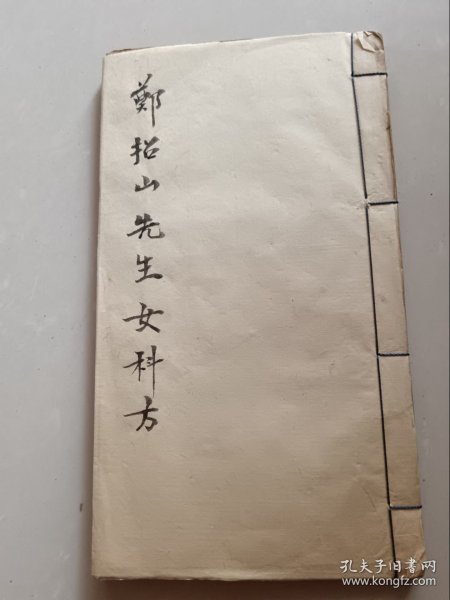 鄭招山先生女科方
孔夫子旧书网
www.kongfz.com